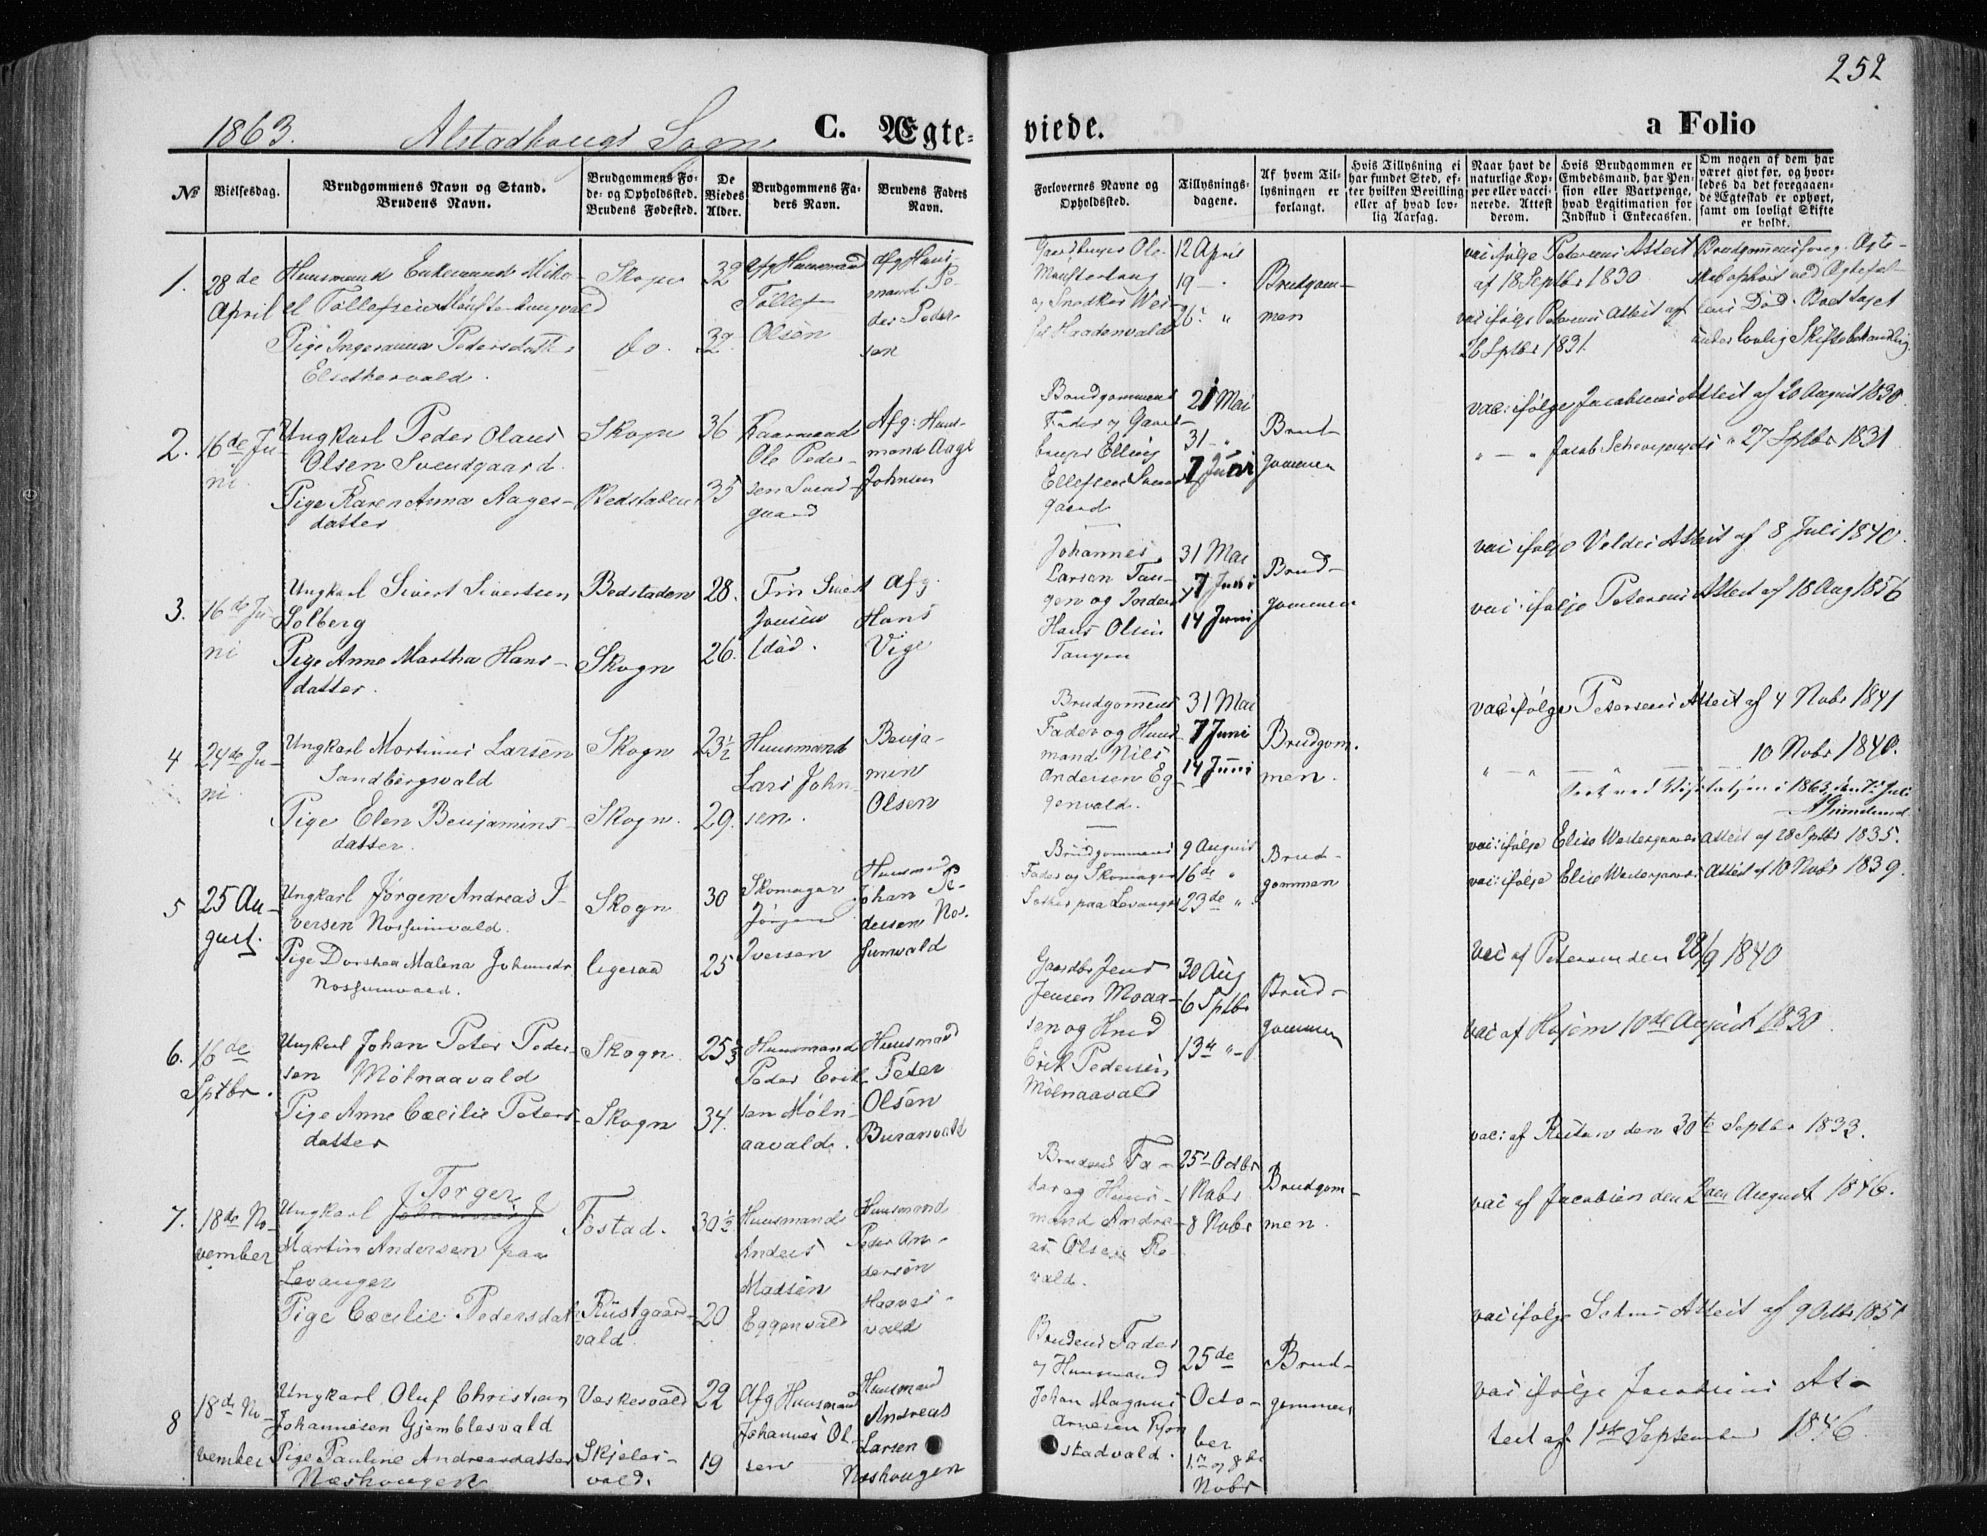 252
1863. Alstadhougs Sogn C. Ægteviede. a Folio
№
Vielsesdag.
Brudgommens Navn og Stand.
Brudens Navn.
Brudgommens Fø-
de- og Opholdssted.
Brudens Fødested.
De
Viedes
Alder.
Brudgommens Fa-
ders Navn.
Brudens Faders
Navn.
Forlovernes Navne og
Opholdssted.
Tillysnings-
dagene.
Af hvem Til-
lysningen er
forlangt.
Hvis Tillysning ei
har fundet Sted, ef-
ter hvilken Bevilling
eller af hvad lov-
lig Aarsag.
Naar havt de
naturlige Kop-
per eller vacci-
nerede. Attest
derom.
Hvis Brudgommen er
Embedsmand, har Pen-
sion eller Vartpenge,
hvad Legitimation for
Indskud i Enkecassen.
Om nogen af dem har
været givt før, og hvor-
ledes da det foregaaen-
de Ægteskab er ophørt,
samt om lovligt Skifte
er holdt.
1.
28de
April
Huusmand Enkemand
el Tollefsen
Pige Ingeranna Pedersdatter
Skogn
do.
32
32
Afg Huusmand
Tollef
Olsen
Afg Huus-
mand Pe-
der Peder-
sen
Gaardbruger Ole
12 April
19 "
26 "
Brudgom-
men
vac ifølge Petersens Attest
af 18 Septbr 1830
vac ifølge Petersens Attest af
26 Sptbr 1831.
Brudgommens foreg. Ægte-
skab ophørt ved Ægtefæl-
lens Død. Boet taget
under lovlig Skiftebehandling.
2.
16de Ju-
ni
Ungkarl Peder Olaus
Olsen Svendgaard
Pige Karen Anna Aages-
datter
Skogn
Bedstaden
36
35
Kaarmand
Ole Peder-
sen Svend-
gaard
Afg: Huus-
mand Aage
Johnsen
Brudgommens
Fader og Gaard-
bruger Elling
Ellefsen Svend-
gaard
21 Mai
31 "
7 Juni
Brud-
gommen
vac: ifølge Jacobsens Attest af 20 August 1830
" — " Jacob " 27 Sptbr 1831
3.
16de Ju-
ni
Ungkarl Sivert Sivertsen
Solberg
Pige Anne Martha Hans-
datter.
Bedstaden
Skogn
28.
26.
Fin Sivert
Jonsen
(død.
Afg.
Hans
Vige
Johannes
Larsen Tan-
gen og
Hans Olsen
Tangen
31 Mai
7 Juni
14 Juni
Brud-
gommen
vac ifølge Veldes Attest af 8 Juli 1840.
vac: ifølge Petersens Attest af 18 Aug 1856
4
24de Ju-
ni.
Ungkarl Martinus Larsen
Sandbergvald
Pige Elen Benjamins-
datter.
Skogn
Skogn.
23½
29.
Huusmand
Lars John-
sen.
Benja-
min
Olsen
Brudgommens
Fader og Huus-
mand Nils
Andersen Eg-
genvald.
31 Mai
7 Juni
14 Juni
Brudgom-
men.
vac ifølge Petersens Attest af 4 Nobr 1841
" — " 10 Nobr 1840.
5
25 Au-
gust.
Ungkarl Jørgen Andreas I-
versen Nossumvald.
Pige Dorthea Malena Johansdr
Nossumvald.
Skogn
ligesaa
30
25
Skomager
Jørgen
Iversen
Huusmand
Johan Pe-
dersen Nos-
sumvald
Brudgommens
Fader og Skomager
paa Levanger
9 August
16de "
23de "
Brud-
gommen
vac: ifølge Elise Westergaards Attest af 28 Sptbr 1835.
vac: ifølge Elise Westergaards Attest af 10 Nobr 1839.
6.
16de
Sptbr.
Ungkarl Johan Peter Peder-
sen Mølnaavald
Pige Anne Cæcilie Peters-
datter
Skogn.
Skogn
25⅔
34.
Huusmand
Peder Erik-
sen Møln-
aavald.
Huusmand
Peter
Olsen
Buranvald
Gaardbr Jens
Jensen Moaa-
sen og Huusmd
Erik Pedersen
Mølnaavald
30 Aug
6 Sptbr
13de "
Brud-
gommen
vac af Petersen den 28/9 1840
vac af Hojem 10de August 1830.
7.
18de No-
vember
Ungkarl Torger
Martin Andersen paa
Levanger
Pige Cæcilie Pedersdat
Fostad.
Rustgaard-
vald
30⅓
20
Huusmand
Anders
Madsen
Eggenvald
Huusmand
Peder An-
dersen
vald
Brudens Fa-
der og Huus-
mand Andre-
as Olsen Ro-
vald.
25de Octbr
1 Nobr
8 Nobr
Brudgom-
men.
vac: af Rustan den 30te Septbr 1833.
vac af Jacobsen den 2den August 1846.
8
18de No-
vember
Ungkarl Oluf Christian
Johannesen Gjemblesvald
Pige Pauline Andreasdatter
Næshougen
Værkesvald
Skjeles-
vald.
22
19
Afg Huusmand
Johannes Ol-
sen
Huusmand
Andreas
Larsen
Næshougen
Brudens Fader
og Huusmand
Johan Magnus
Arnesen
stadvald.
25de
Octo-
ber
1ste og 8de
Nobr
Brud-
gommen
vac ifølge Attest af 9 Octbr 1851
vac ifølge Jacobsens At-
test af 1ste September 1846.